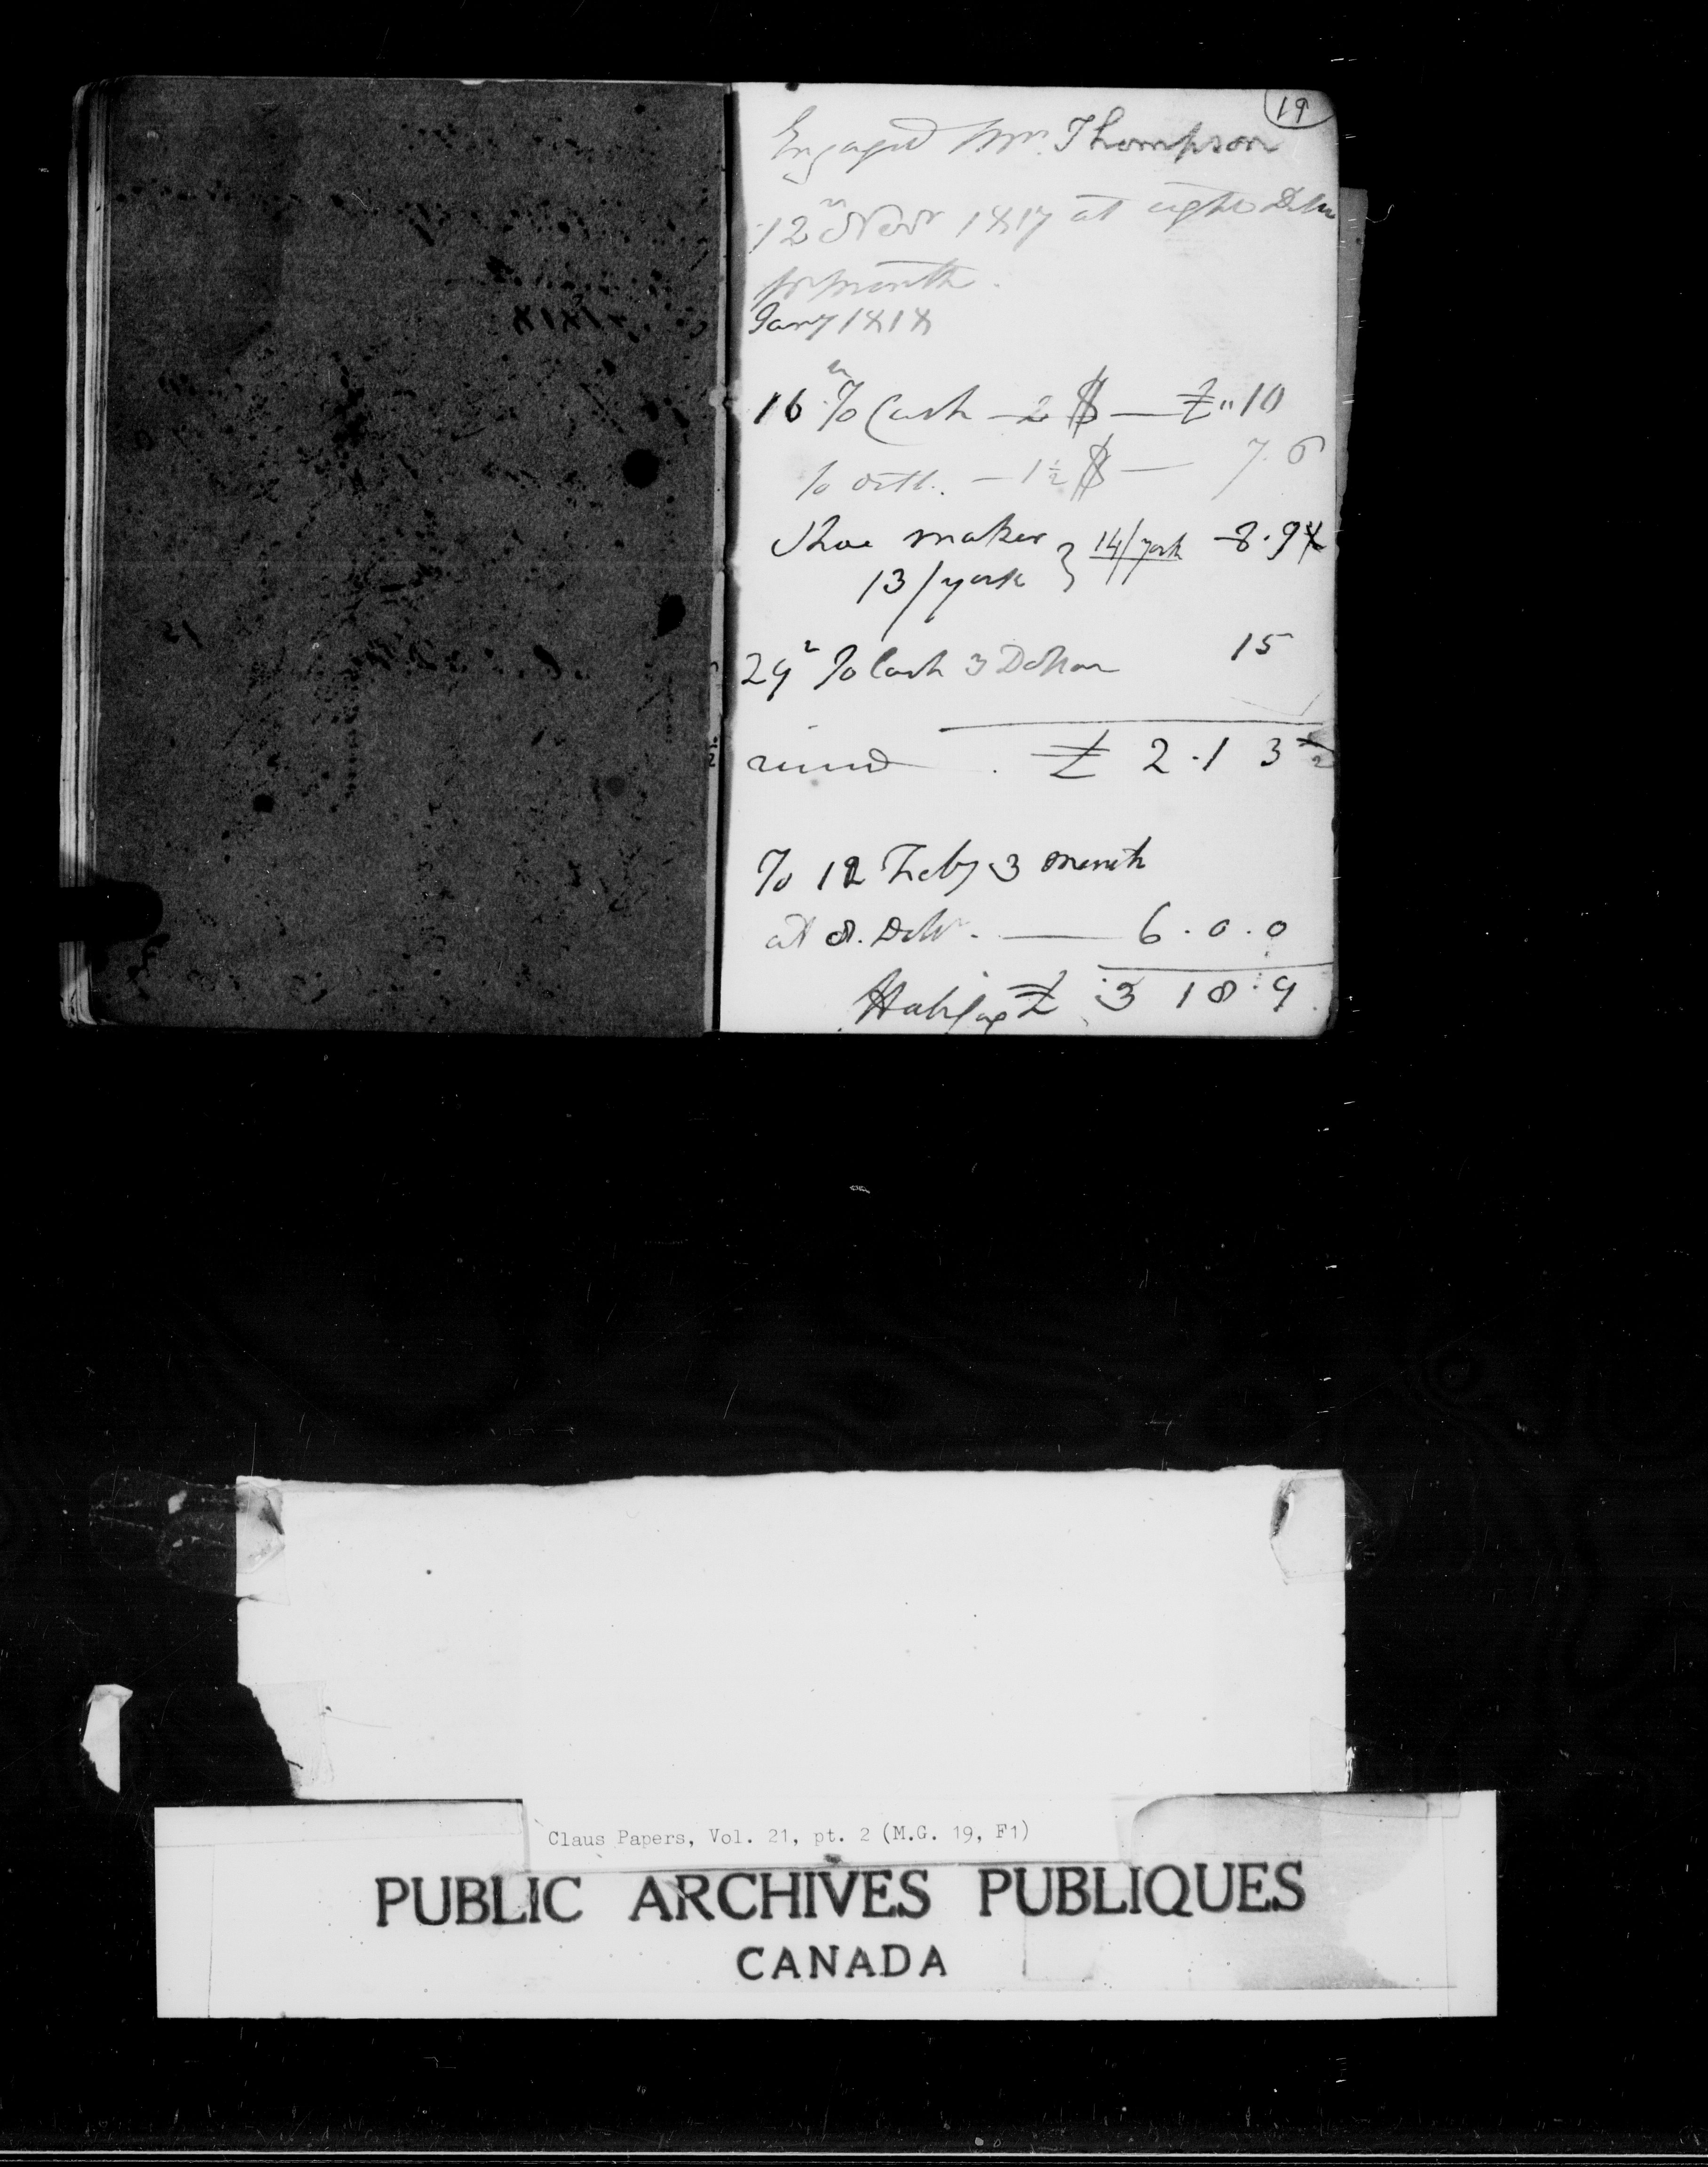 19
Engaged Mr. Thompson
12th Novr 1817 at eight Dolrs
pr month.
Jany 1818
16th To Cash — 2 $ — £ " 10
To ditt. — 1½ $ — 7.6
Shoe maker } 14/york 8.9
13/york
29th To Cash 3 Dollars 15
£ 2.1 3½
To 12 Feby 3 month
at 8. Dolrs. — 6.0.0
Halifax £ 3 18.9
Claus Papers, Vol. 21, pt. 2 (M.G. 19, F1)
PUBLIC ARCHIVES PUBLIQUES
CANADA